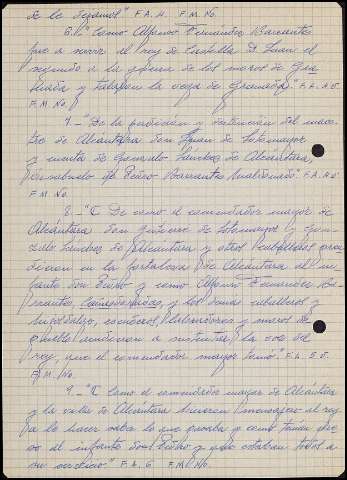 de lo dejamos" F. A. H. F. M. No.
6.- "Como Alfonso Fernandez Barrantes
fue a servir al rey de Castilla D. Juan el
segundo a la guerra de los moros de Gra-
nada y talaron la vega de Granada". F. A. 5.
F. M. No.
7.- "De la perdicion y detencion del maes-
tre de Alcántara don Juan de Sotomayor
y muerte de Gonzalo Sánchez de Alcántara,
de Pedro Barrantes Maldonado". F. A. 5.
F. M. No.
8.- "C De como el comendador mayor de
Alcántara don Gutierre de Sotomayor y Gon-
zalo Sánchez de Alcántara y otros caballeros pren-
dieron en la fortaleza de Alcántara al in-
fante don Pedro y como Alfonso Fernandez Ba-
rrantes, y los demas caballeros y
hijosdalgo, escuderos, labradores y moros del
pueblo a sustentar la voz del
rey, que el comendador mayor tomó". F. A. 5.
F. M. No.
9.- "C Como el comendador mayor de Alcántara
y la villa de Alcántara hicieron mensajero al rey
a le hacer saber lo que pasaba y como tenian pre-
so al infante don Pedro y que estaban todos a
su servicio". F. A. 6. F. M. No.